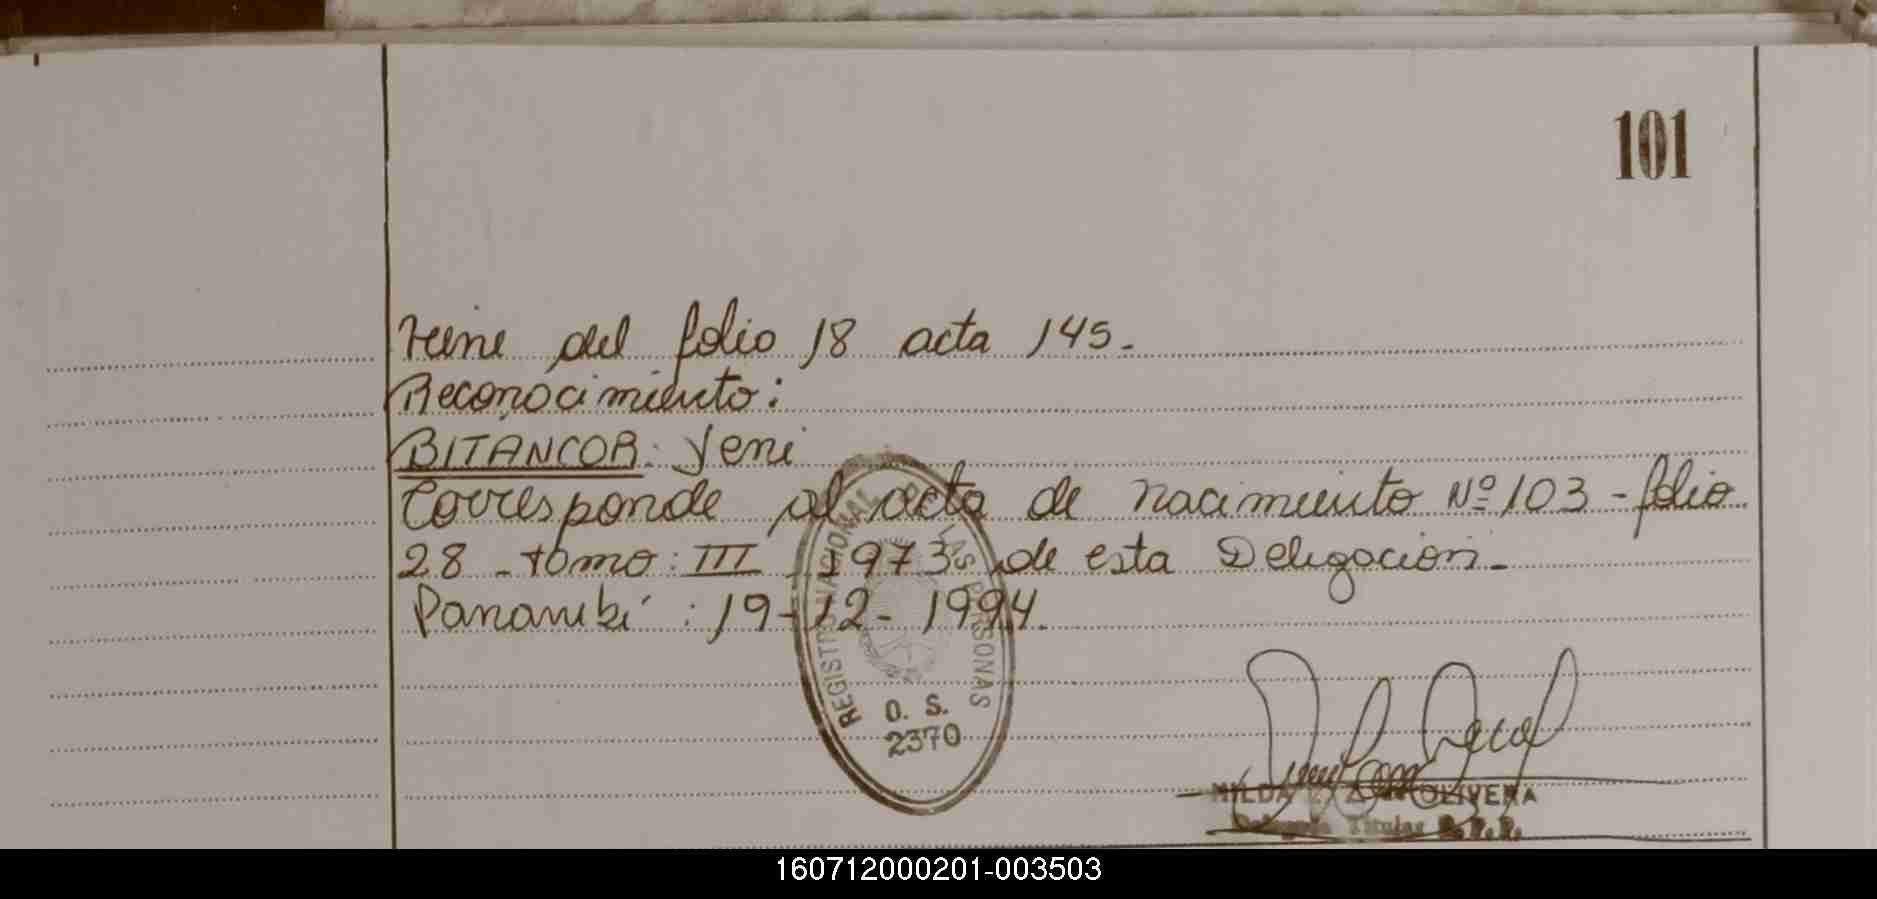 101
Viene del folio 18 acta 145.-
Reconocimiento:
BITANCOR: Yeni
Corresponde al acta de nacimiento Nº 103 - folio
28 - tomo: III - 1973 de esta Delegación.-
Panambí: 19-12-1994.
REGISTRO NACIONAL DE LAS PERSONAS
O. S.
2370
HILDA OLIVERA
Titular
160712000201-003503